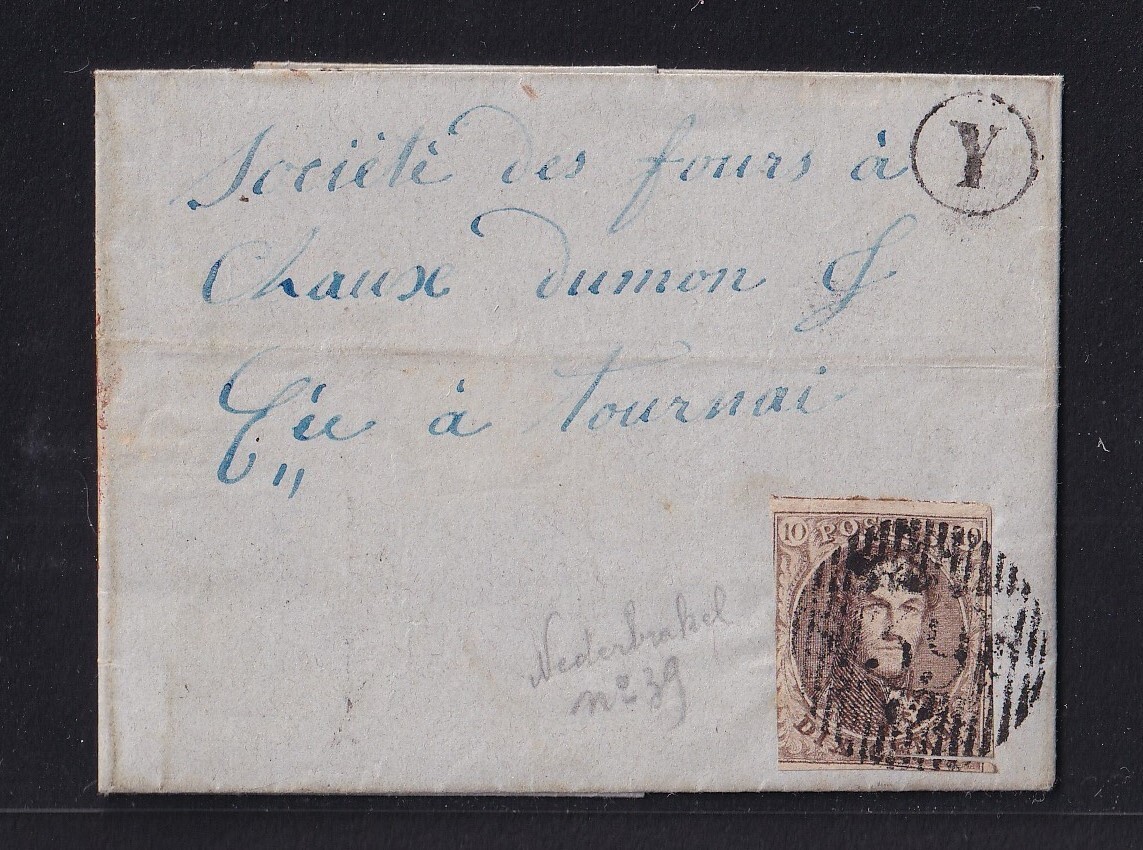 Société des fours à
Y
Chaux dumon &
Cie à Tournai
10 POS
Nederbrakel
nº 39